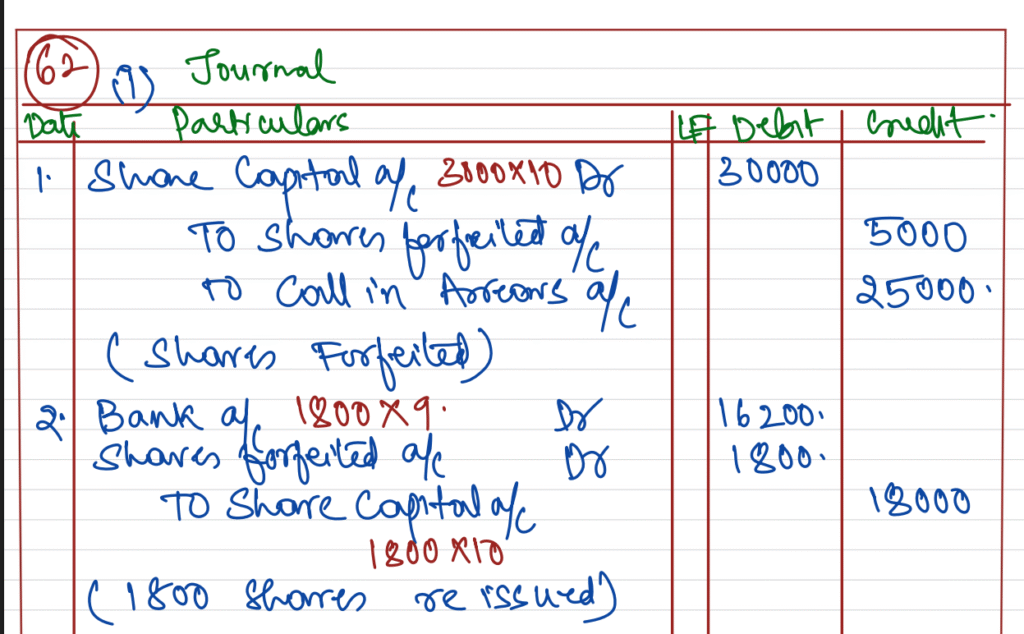 62 (1) Journal
Date Particulars LF Debit Credit.
1. Share Capital a/c 3000×10 Dr 30000
To Shares forfeited a/c 5000
To Call in Arrears a/c 25000.
(Shares Forfeited)
2. Bank a/c 1800×9. Dr 16200.
Shares forfeited a/c Dr 1800.
To Share Capital a/c 18000
1800×10
(1800 Shares re issued)